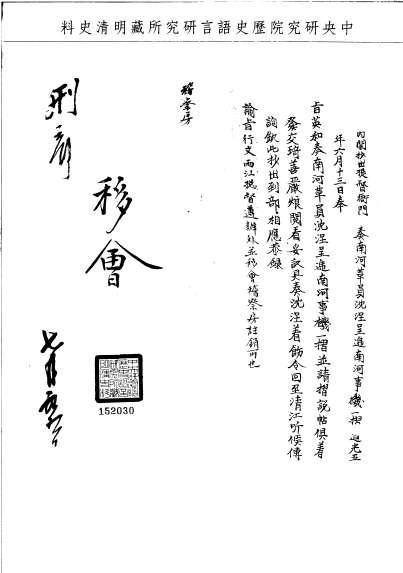 中央研究院歷史語言研究所藏明清史料
內閣抄出提督衙門 奏南河革員沈涅呈進南河事機一摺 道光五
年六月十三日奉
旨英和奏南河革員沈涅呈進南河事機一摺並請摺說帖俱着
發交琦善嚴烺閱看妥議具奏沈涅着飭令回至清江听候傳
詢欽此抄出到部相應恭錄
諭旨行文兩江總督遵辦外並移會稽察房註銷可也
稽察房
移會
刑部
七月
152030